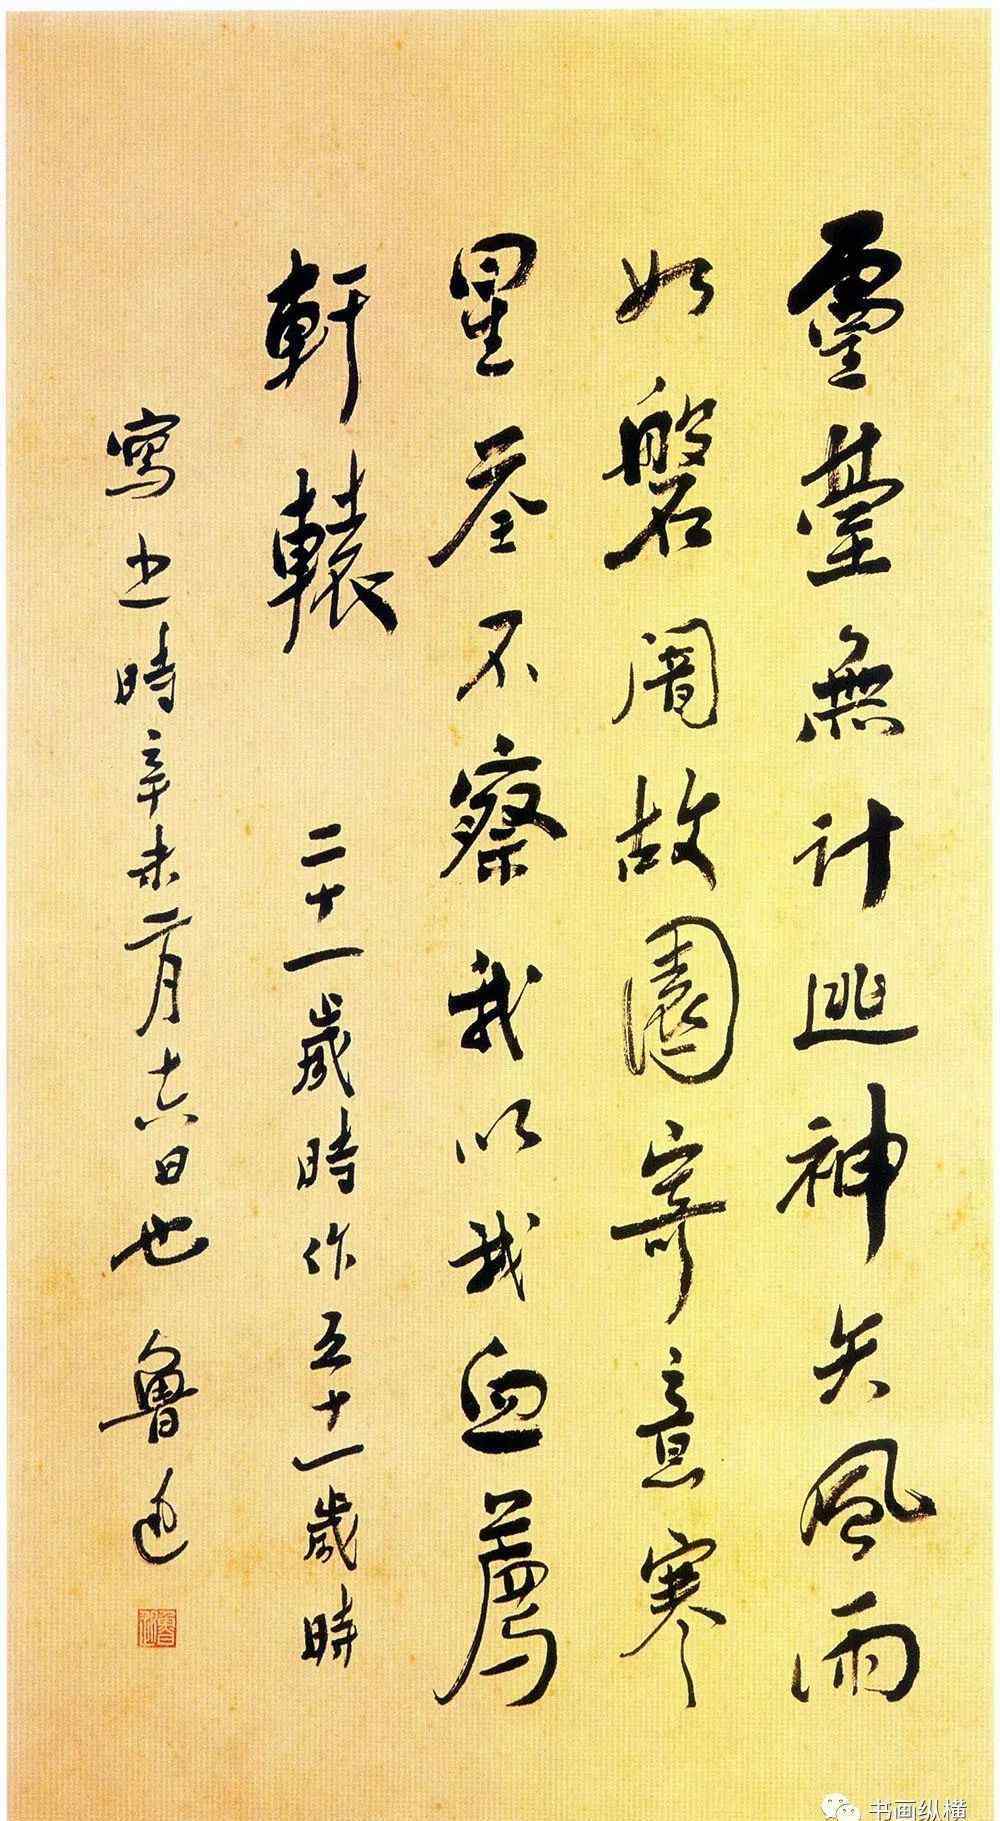 靈臺無計逃神矢風雨
如磐闇故園寄意寒
星荃不察我以我血薦
軒轅 二十一歲時作五十一歲時
寫之時辛未二月十六日也 魯迅
魯迅
书画纵横